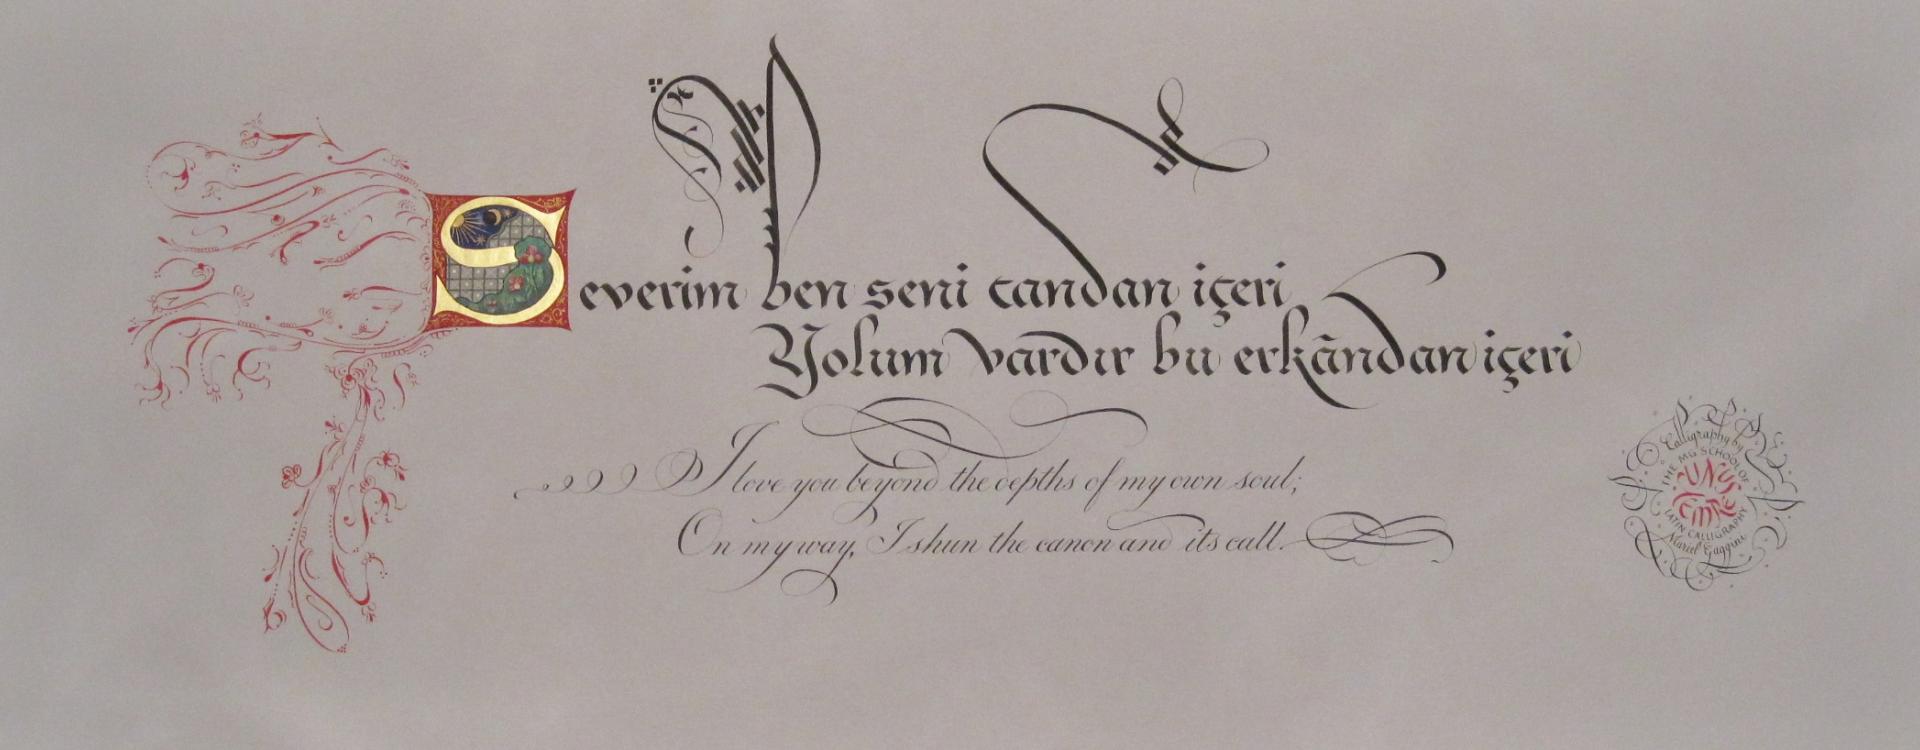 Severim ben seni candan içeri
Yolum vardır bu erkândan içeri
I love you beyond the depths of my own soul;
On my way, I shun the canon and its call.
Calligraphy by
THE MG SCHOOL OF
YUNUS
EMRE
LATIN CALLIGRAPHY
Mariel Gaggini